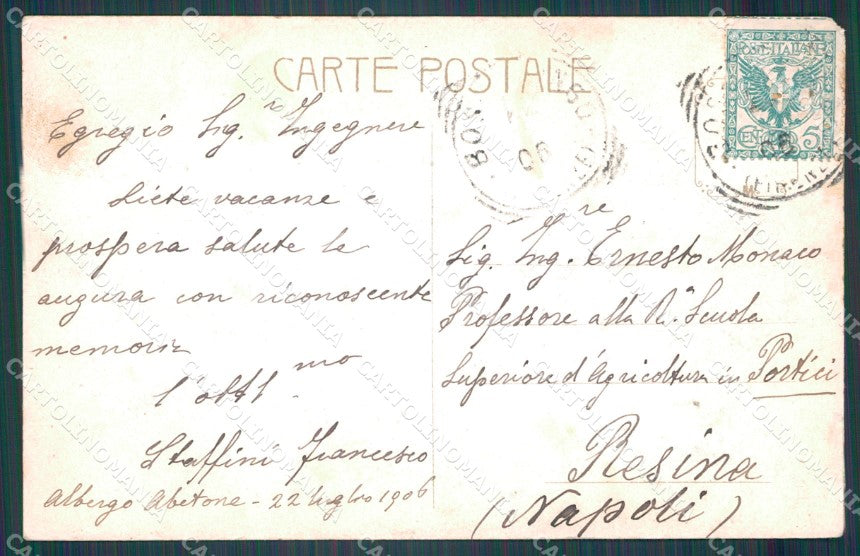 CARTE POSTALE
POSTE ITALIANE
CENT. 5
06
06
Egregio Sig.r Ingegnere
Liete vacanze e
prospera salute le
augura con riconoscente
memoria
l'obbl.mo
Staffini Francesco
Albergo Abetone - 22 luglio 1906
Sig. Ing.re Ernesto Monaco
Professore alla R.a Scuola
Superiore d'Agricoltura in Portici
Resina
(Napoli)
CARTOLINOMANIA